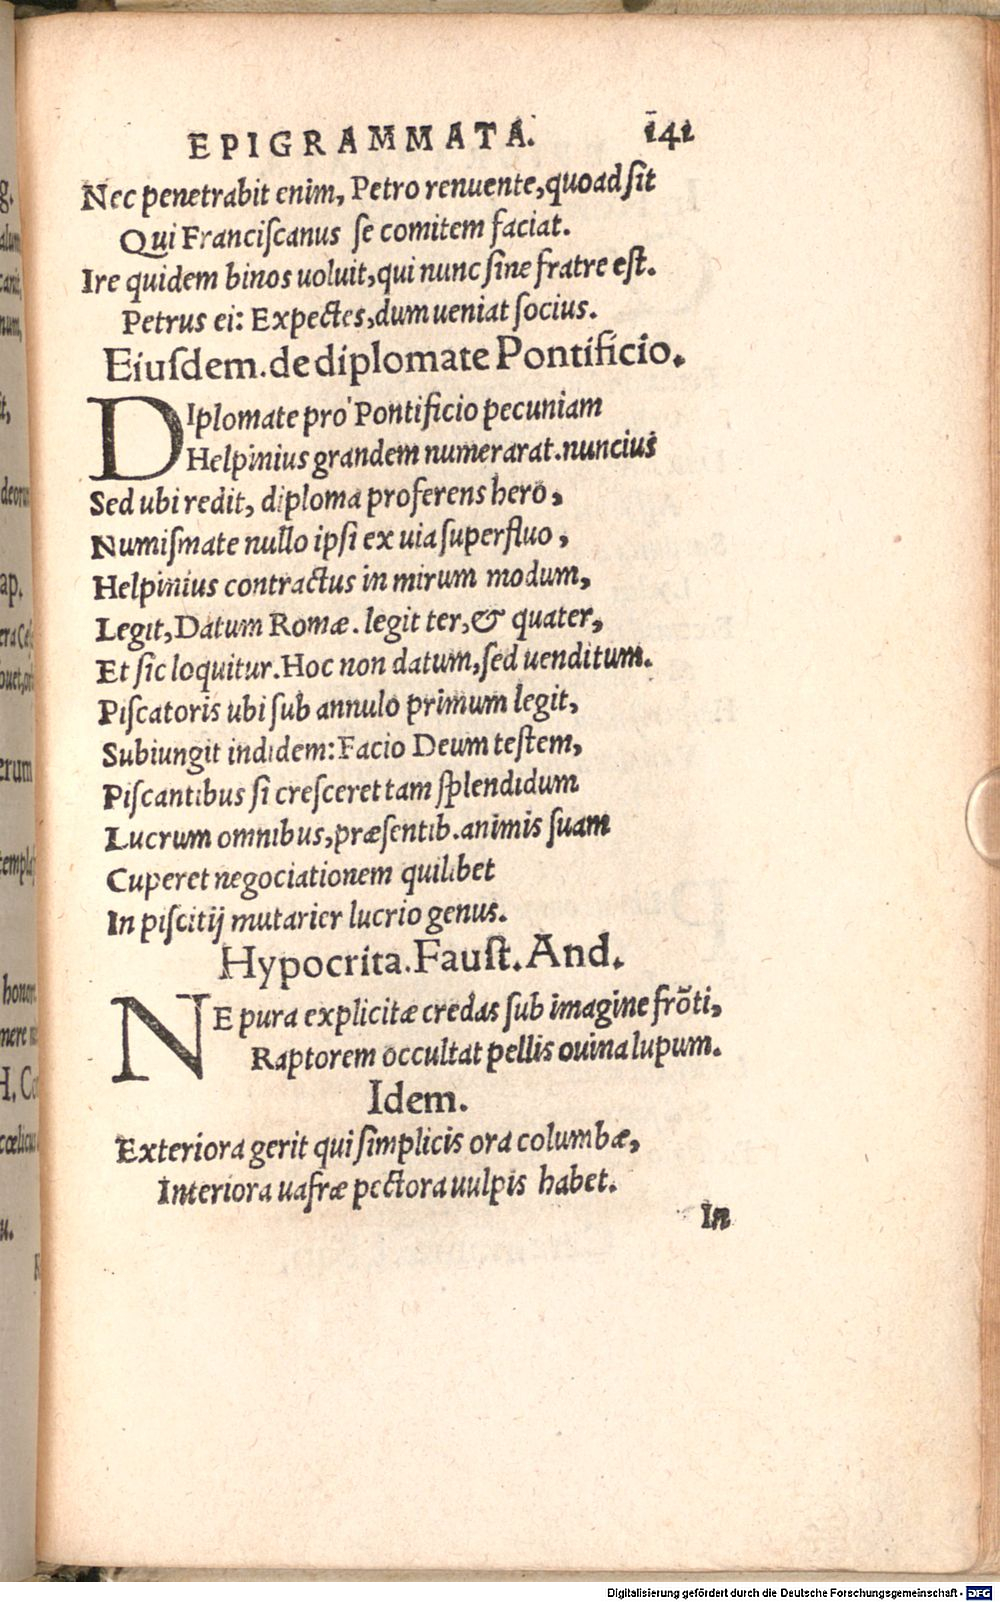 EPIGRAMMATA. 141
Nec penetrabit enim, Petro renuente, quoad ſit
Qui Franciſcanus ſe comitem faciat.
Ire quidem binos uoluit, qui nunc ſine fratre eſt.
Petrus ei: Expectes, dum ueniat ſocius.
Eiuſdem. de diplomate Pontificio.
DIplomate pro Pontificio pecuniam
Helpinius grandem numerarat. nuncius
Sed ubi redit, diploma proferens hero,
Numiſmate nullo ipſi ex uia ſuperfluo,
Helpinius contractus in mirum modum,
Legit, Datum Romæ. legit ter, & quater,
Et ſic loquitur. Hoc non datum, ſed uenditum.
Piſcatoris ubi ſub annulo primum legit,
Subiungit indidem: Facio Deum teſtem,
Piſcantibus ſi creſceret tam ſplendidum
Lucrum omnibus, præſentib. animis ſuam
Cuperet negociationem quilibet
In piſcitij mutarier lucrio genus.
Hypocrita. Fauſt. And.
NE pura explicitæ credas ſub imagine frōti,
Raptorem occultat pellis ouina lupum.
Idem.
Exteriora gerit qui ſimplicis ora columbæ,
Interiora uafræ pectora uulpis habet.
In
Digitalisierung gefördert durch die Deutsche Forschungsgemeinschaft - DFG